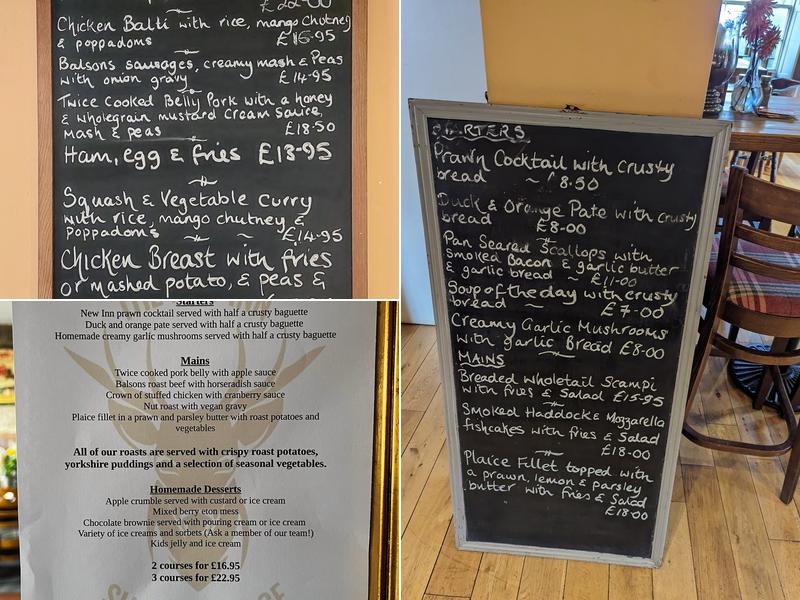 £22.00
Chicken Balti with rice, mango chutney
& poppadoms £16.95
Balsons sausages, creamy mash & Peas
with onion gravy £14.95
Twice Cooked Belly Pork with a honey
& wholegrain mustard cream sauce,
mash & peas £18.50
Ham, egg & fries £13-95
Squash & Vegetable Curry
with rice, mango chutney &
Poppadoms ~ £14.95
Chicken Breast with fries
or mashed potato, & peas &
Starters
New Inn prawn cocktail served with half a crusty baguette
Duck and orange pate served with half a crusty baguette
Homemade creamy garlic mushrooms served with half a crusty baguette
Mains
Twice cooked pork belly with apple sauce
Balsons roast beef with horseradish sauce
Crown of stuffed chicken with cranberry sauce
Nut roast with vegan gravy
Plaice fillet in a prawn and parsley butter with roast potatoes and
vegetables
All of our roasts are served with crispy roast potatoes,
yorkshire puddings and a selection of seasonal vegetables.
Homemade Desserts
Apple crumble served with custard or ice cream
Mixed berry eton mess
Chocolate brownie served with pouring cream or ice cream
Variety of ice creams and sorbets (Ask a member of our team!)
Kids jelly and ice cream
2 courses for £16.95
3 courses for £22.95
STARTERS
Prawn Cocktail with crusty
bread ~ 8.50
Duck & Orange Pate with crusty
bread £8-00
Pan Seared Scallops with
Smoked Bacon & garlic butter
& garlic bread ~ £11-00
Soup of the day with crusty
bread ~ £7-00
Creamy Garlic Mushrooms
with garlic Bread £8-00
MAINS
Breaded wholetail Scampi
with fries & Salad £15-95
Smoked Haddock & Mozzarella
fishcakes with fries & Salad
£18-00
Plaice Fillet topped with
a prawn, lemon & parsley
butter with fries & Salad
£18-00